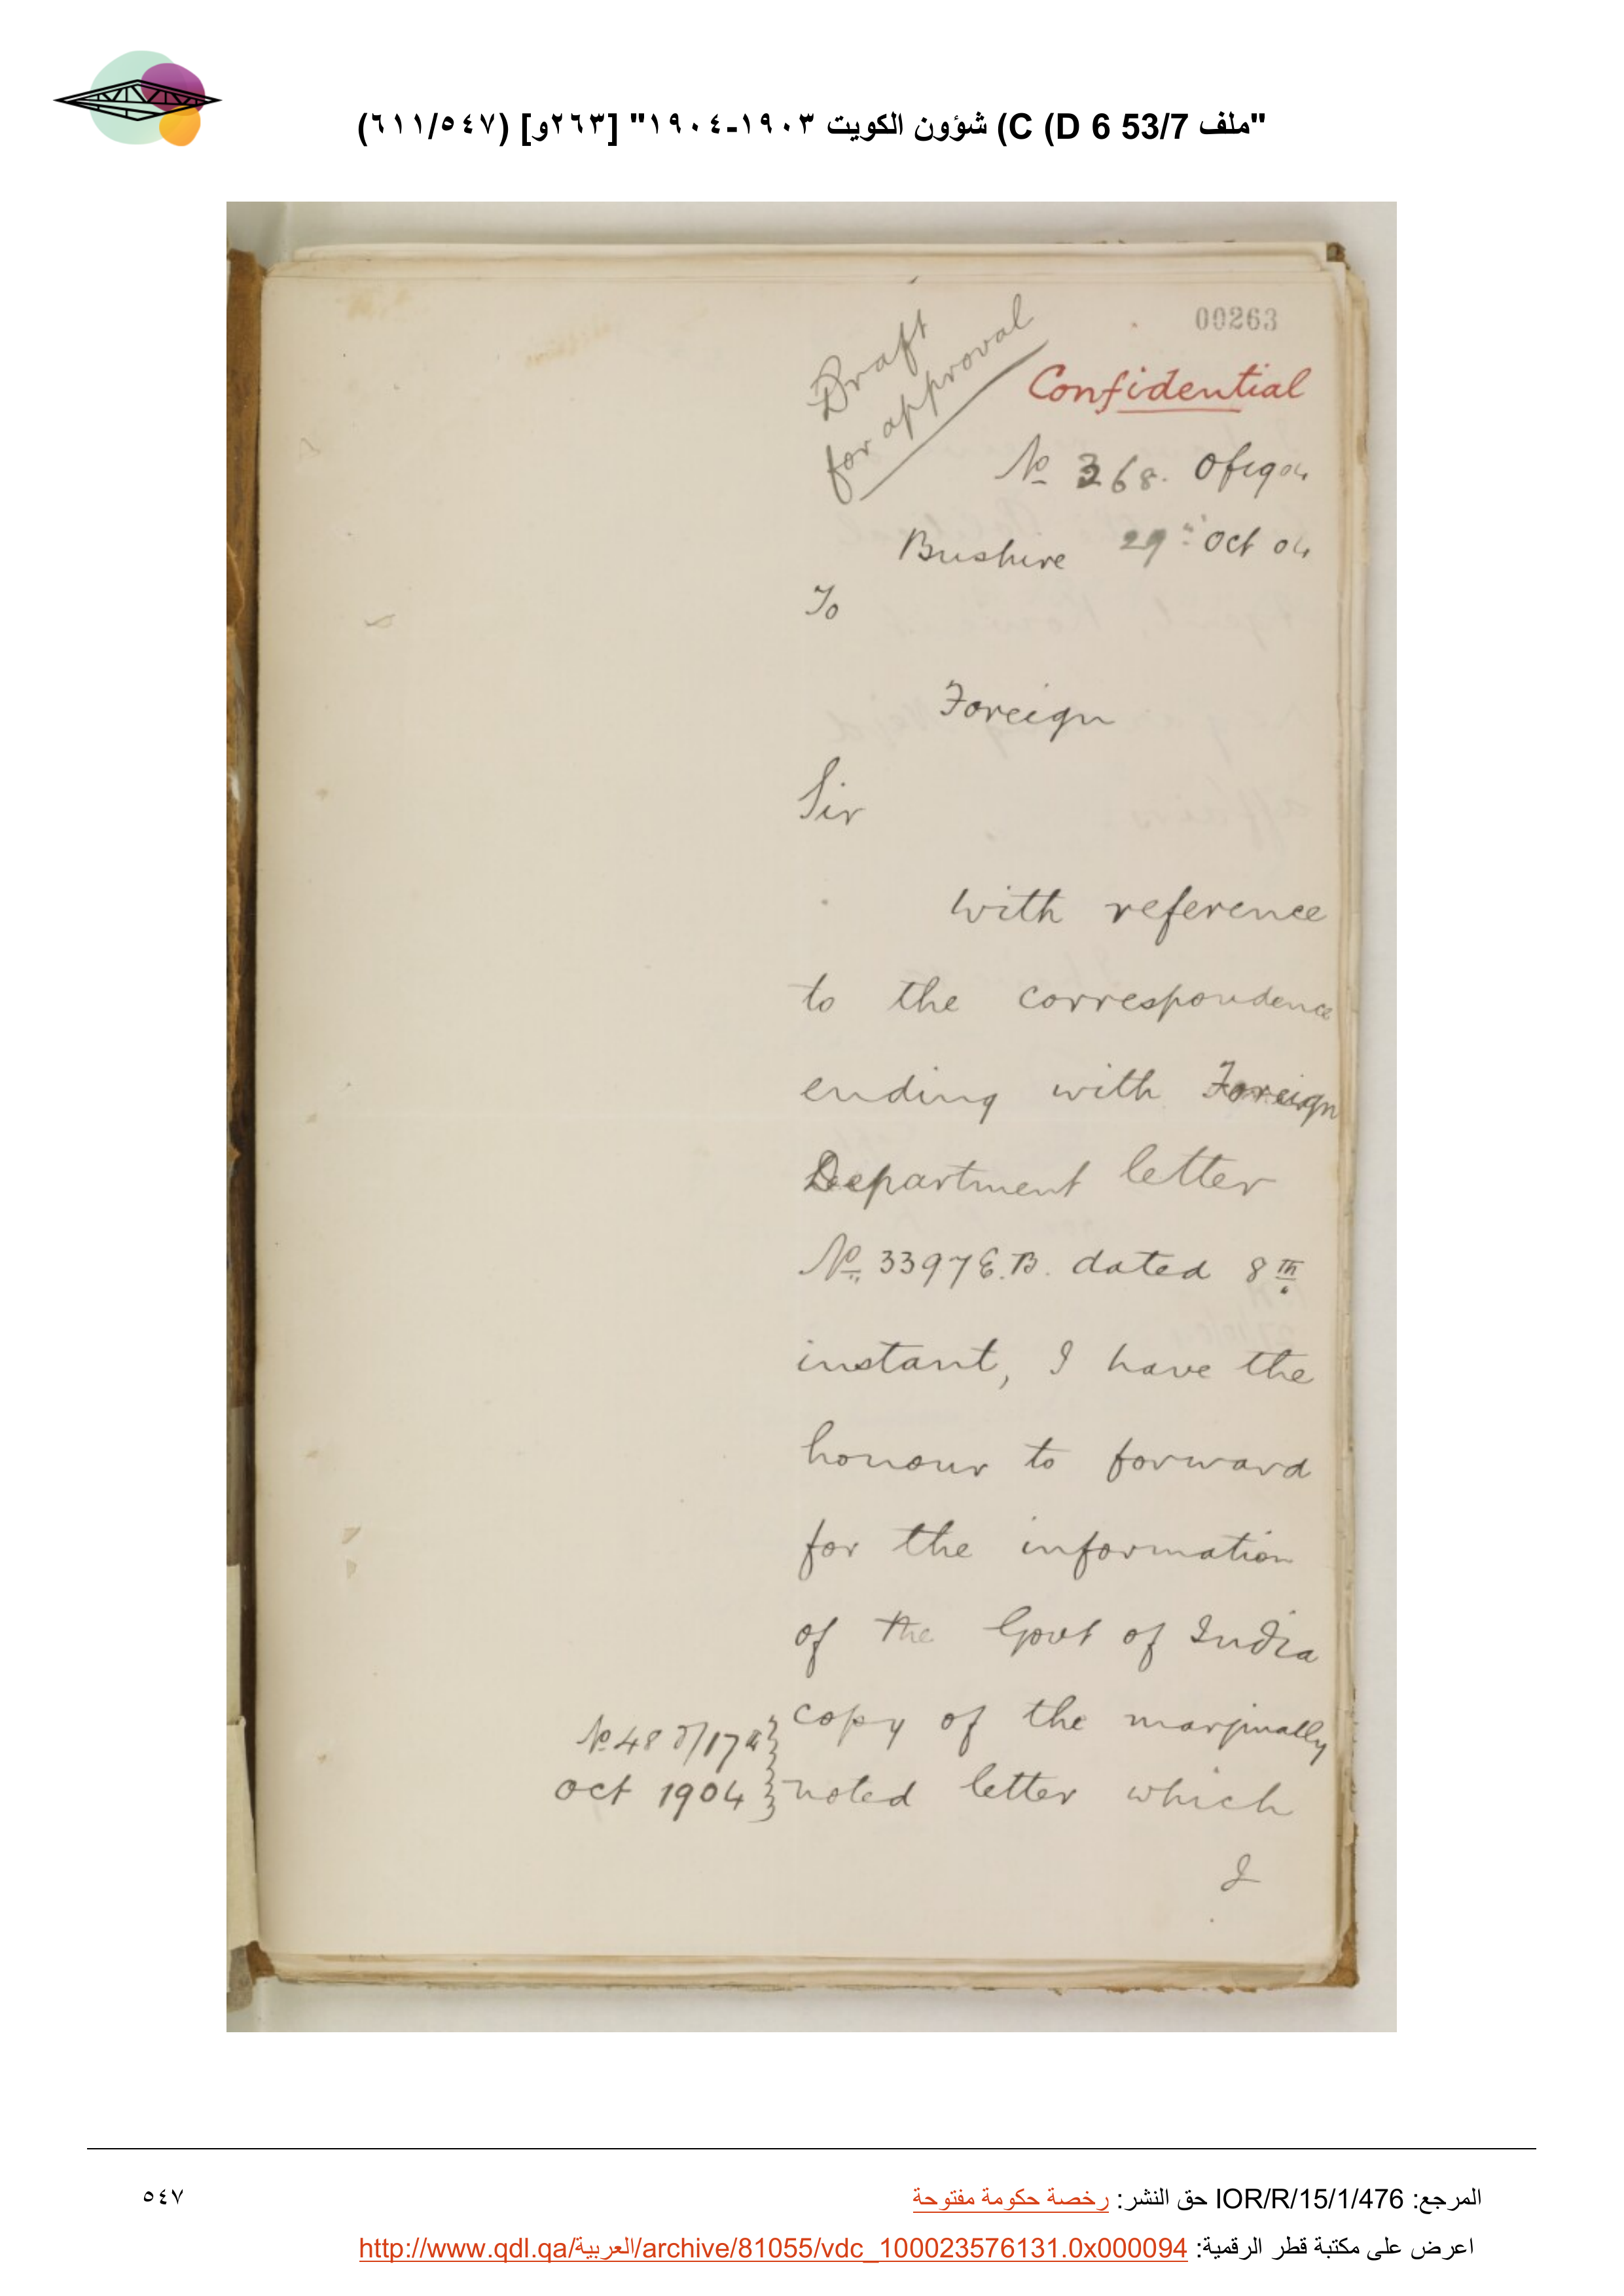 "ملف 53/7 C (D 6) شؤون الكويت ١٩٠٣-١٩٠٤" [٢٦٣و] (٦١١/٥٤٧)
00263
Draft
for approval
Confidential
No 368. Of 1904
Bushire 29th Oct 04
To
Foreign
Sir
With reference
to the correspondence
ending with Foreign
Department letter
No 3397 E.B. dated 8th
instant, I have the
honour to forward
for the information
of the Govt of India
copy of the marginally
No 48 17th
Oct 1904
noted letter which
I
المرجع: IOR/R/15/1/476 حق النشر: رخصة حكومة مفتوحة
٥٤٧
اعرض على مكتبة قطر الرقمية: http://www.qdl.qa/العربية/archive/81055/vdc_100023576131.0x000094